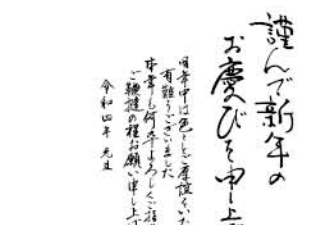 謹んで新年の
お慶びを申し上
旧年中は色々とご厚誼いた
有難うございました
本年も何卒よろしくご指
ご鞭撻の程お願い申し上げ
令和四年 元旦